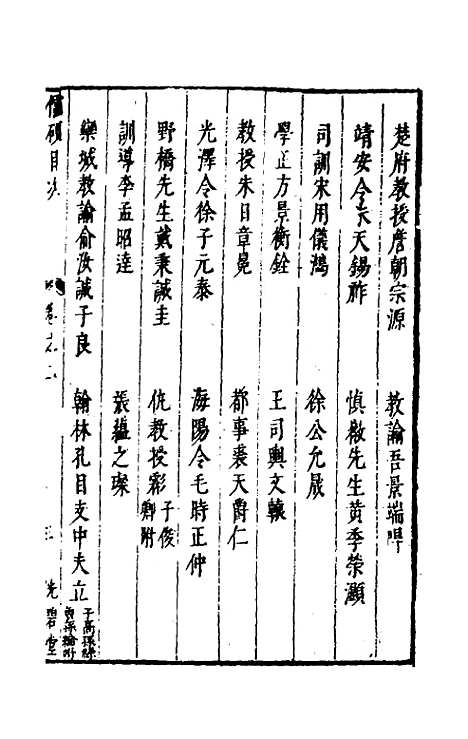 楚府教授詹朝宗源　教諭吾景端冔
靖安令朱天錫祚　慎獨先生黃季榮灝
司訓宋用儀鴻　徐公允晟
學正方景衡銓　王司輿文轅
教授朱日章冕　都事裴天爵仁
光澤令徐子元泰　海陽令毛時正仲
野橋先生戴秉誠圭　仇教授彩 子俊卿附
訓導李孟昭逵　張蘊之璨
欒城教諭俞汝誠子良　翰林孔目支中夫立
目次
卷之二
堂